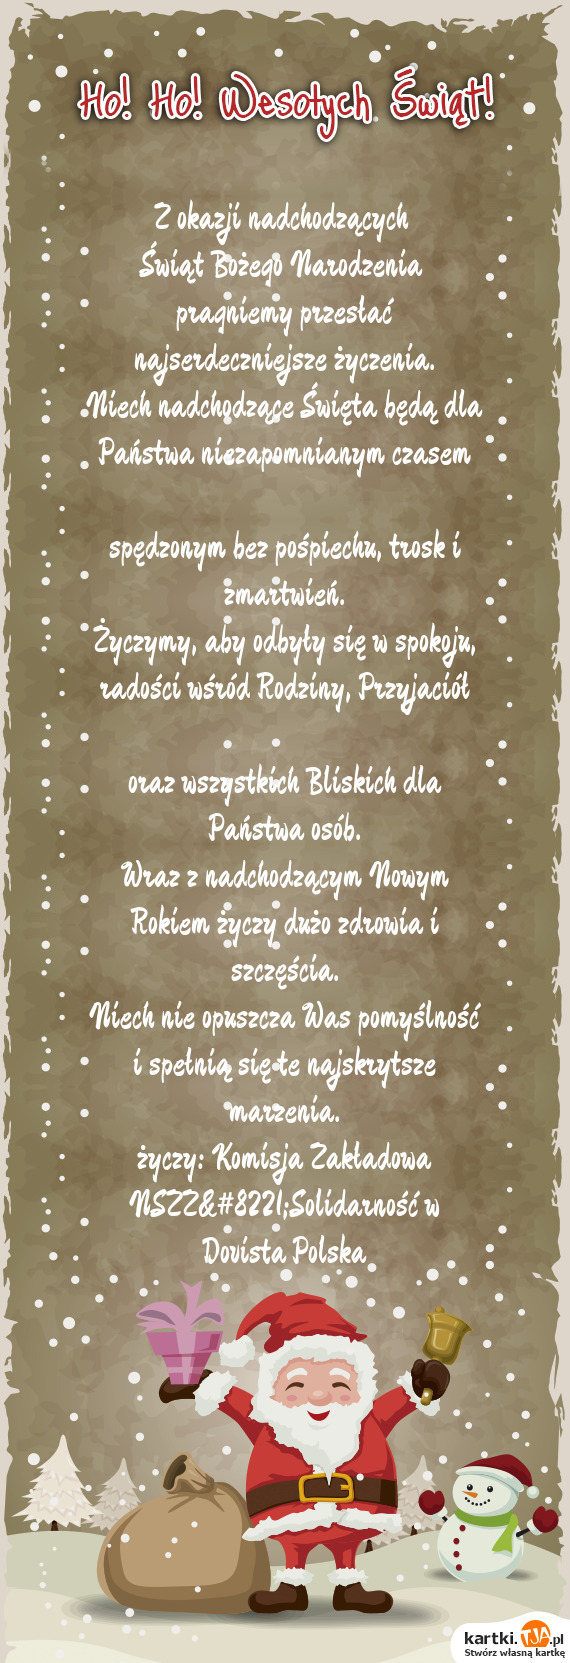 Ho! Ho! Wesołych Świąt!
Z okazji nadchodzących
Świąt Bożego Narodzenia
pragniemy przesłać
najserdeczniejsze życzenia.
Niech nadchodzące Święta będą dla
Państwa niezapomnianym czasem
spędzonym bez pośpiechu, trosk i
zmartwień.
Życzymy, aby odbyły się w spokoju,
radości wśród Rodziny, Przyjaciół
oraz wszystkich Bliskich dla
Państwa osób.
Wraz z nadchodzącym Nowym
Rokiem życzy dużo zdrowia i
szczęścia.
Niech nie opuszcza Was pomyślność
i spełnią się te najskrytsze
marzenia.
życzy: Komisja Zakładowa
NSZZ&#8221;Solidarność w
Dovista Polska
kartki.TJA.pl
Stwórz własną kartkę